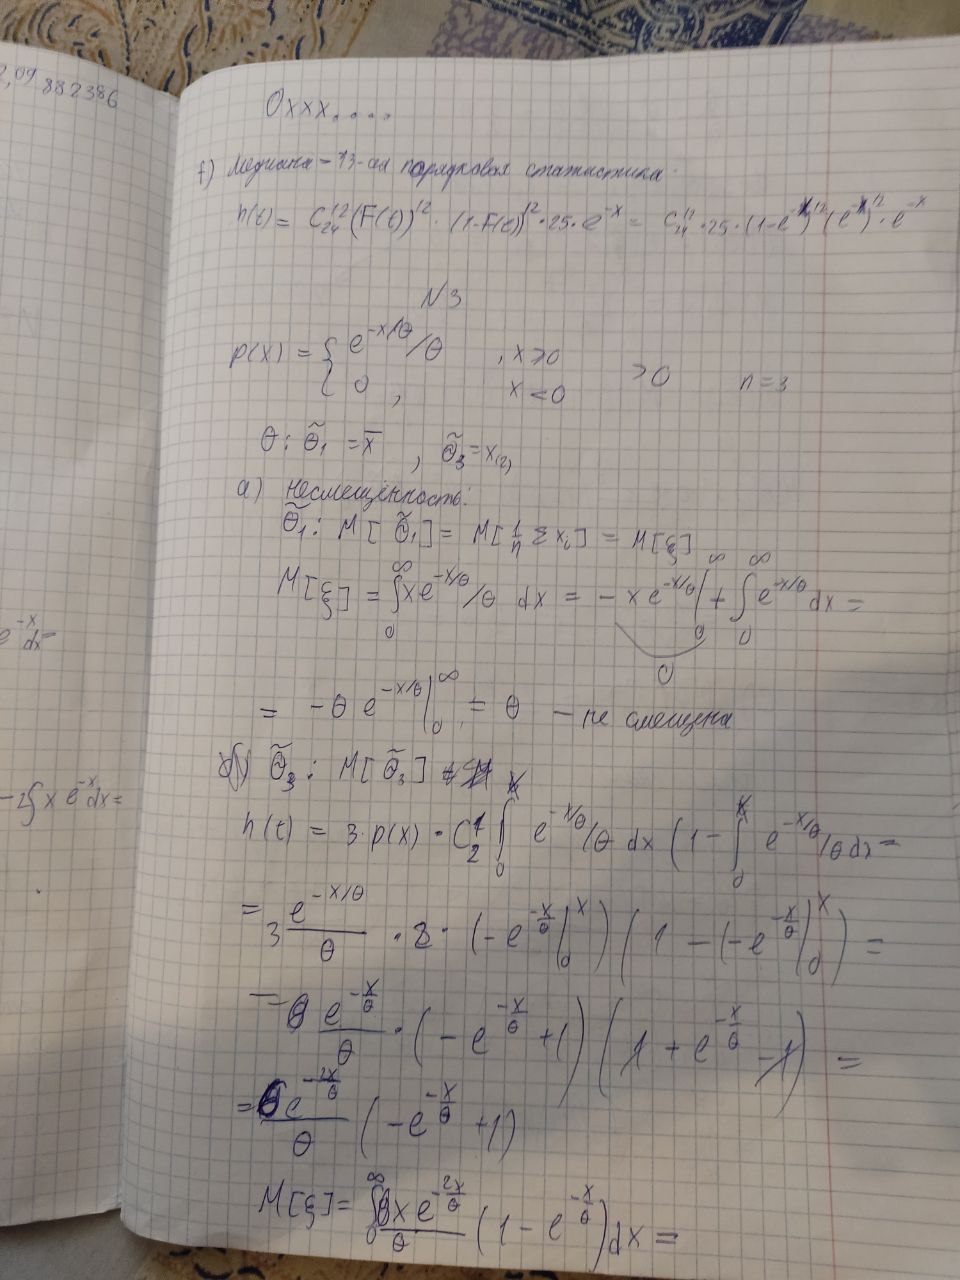 2,09 882386
0xxx....
f) Медиана - 13-ая порядковая статистика.
h(t) = C₂₄¹² (F(t))¹² · (1-F(t))¹² · 25 · e^{-x} = C₂₄¹² · 25 · (1-e^{-x})¹² (e^{-x})¹² · e^{-x}
N3
p(x) = { e^{-x/θ}/θ , x⩾0
0 , x<0 >0 n=3
θ: θ̃₁ = x̄ , θ̃₃ = x₍₂₎
a) несмещённость:
θ̃₁: M[θ̃₁] = M[1/n Σxᵢ] = M[ξ]
M[ξ] = ∫₀^∞ xe^{-x/θ}/θ dx = -xe^{-x/θ}|₀^∞ + ∫₀^∞ e^{-x/θ}dx =
0
= -θe^{-x/θ}|₀^∞ = θ - не смещена
e^{-x}dx=
б) θ̃₃: M[θ̃₃]
-2∫xe^{-x}dx=
h(t) = 3·p(x)·C₂¹ ∫₀^x e^{-x/θ}/θ dx (1-∫₀^x e^{-x/θ}/θdx =
= 3 e^{-x/θ}/θ · 2 · (-e^{-x/θ}|₀^x) (1-(-e^{-x/θ}|₀^x) =
= 6e^{-x/θ}/θ · (-e^{-x/θ}+1) (1+e^{-x/θ}-1) =
= 6e^{-2x/θ}/θ (-e^{-x/θ}+1)
M[ξ] = ∫₀^∞ 6xe^{-2x/θ}/θ (1-e^{-x/θ})dx =